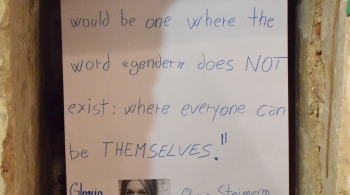 would be one where the
word «gender» does NOT
exist: where everyone can
be THEMSELVES."
Gloria